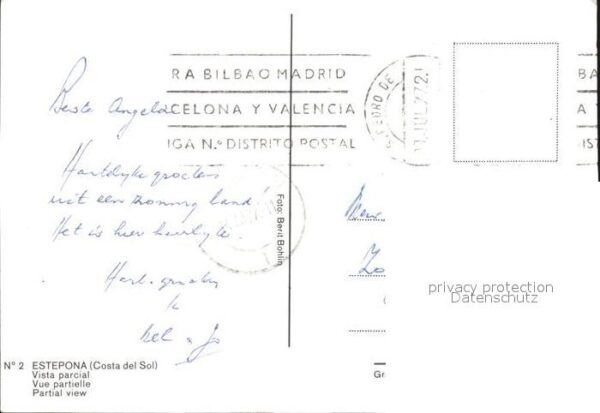 RA BILBAO MADRID
CELONA Y VALENCIA
IGA N.º DISTRITO POSTAL
PEDRO DE
BA
A Y
IST
Beste Angela
Hartelijke groeten
uit een zonnig land!
Het is hier heerlijk.
Hart. groeten
Foto: Berit Bohlin
privacy protection
Datenschutz
Nº 2 ESTEPONA (Costa del Sol)
Vista parcial
Vue partielle
Partial view